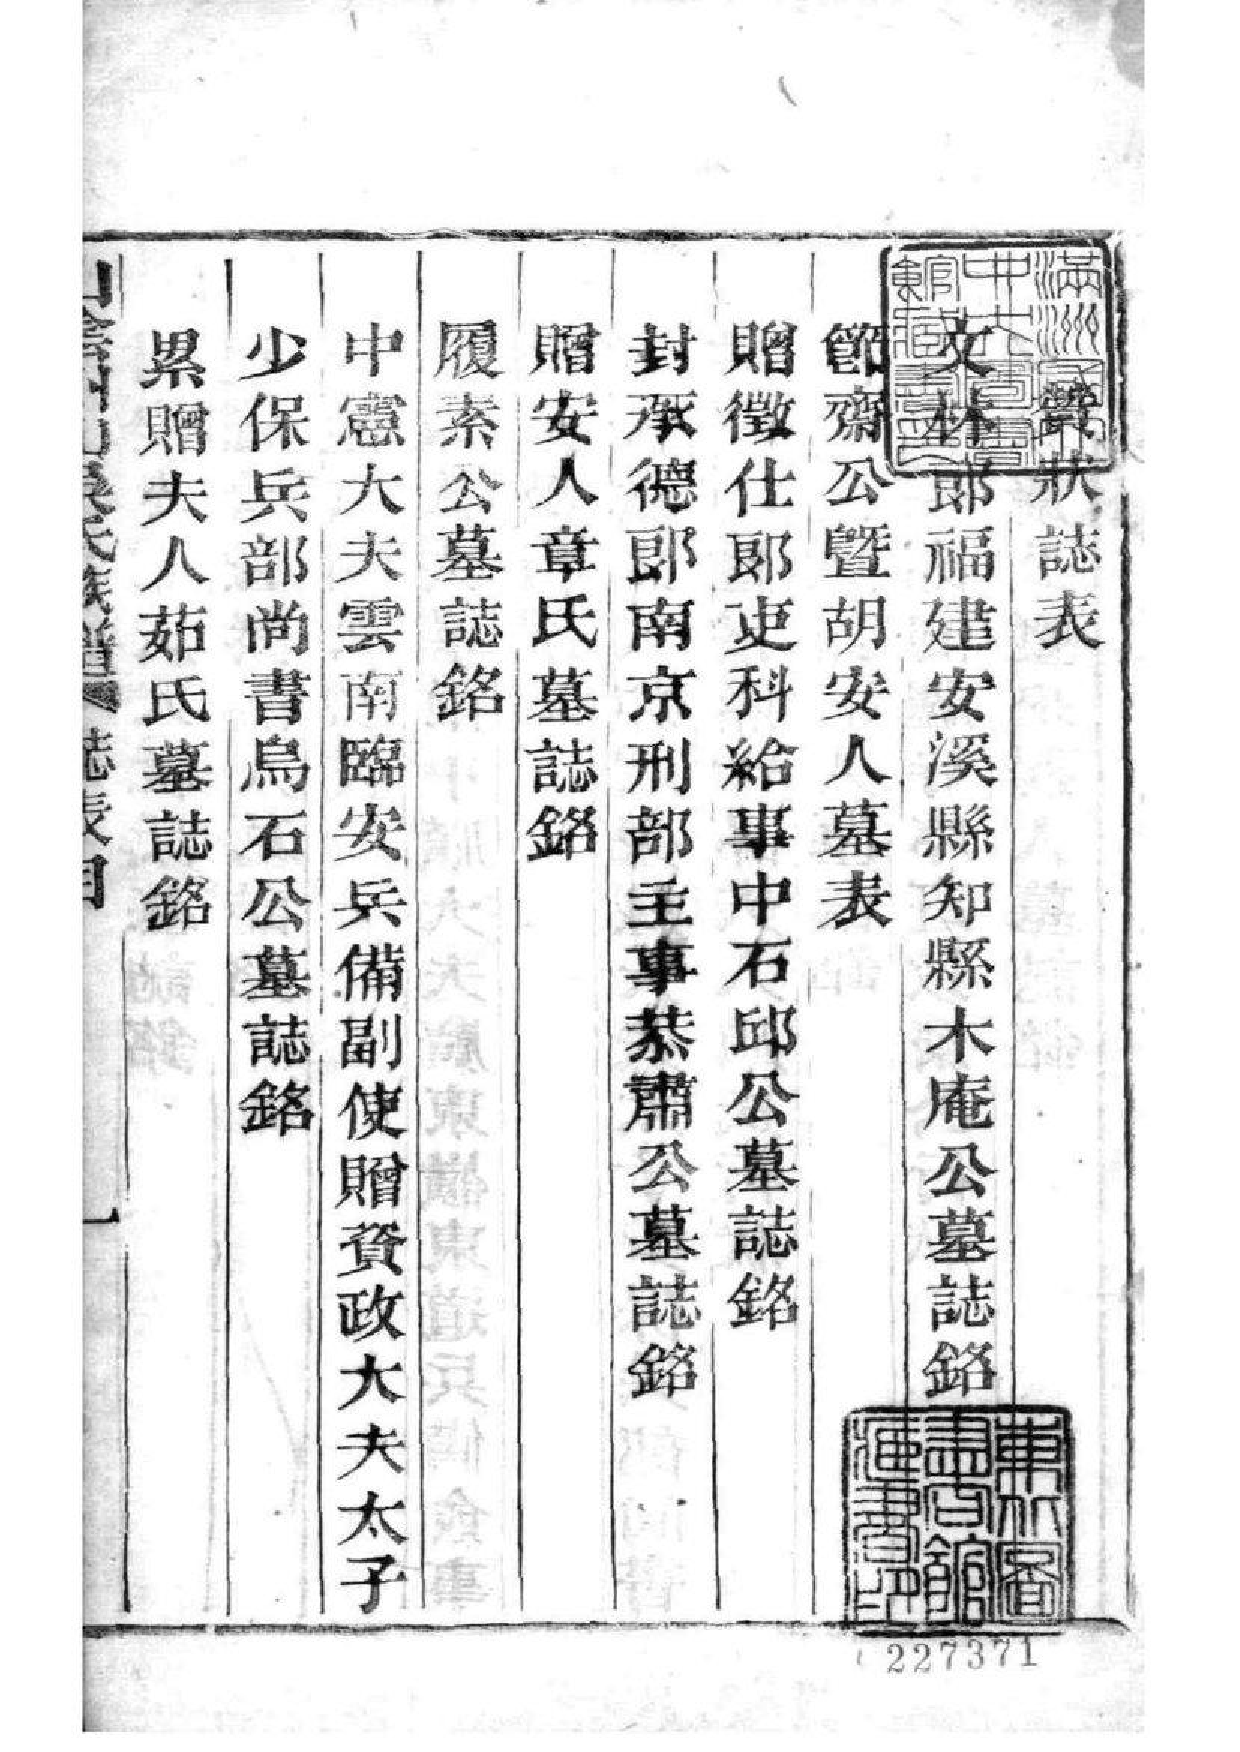 贊狀誌表
文林郎福建安溪縣知縣木庵公墓誌銘
節齋公暨胡安人墓表
贈徵仕郎吏科給事中石邱公墓誌銘
封承德郎南京刑部主事恭肅公墓誌銘
贈安人章氏墓誌銘
履素公墓誌銘
中憲大夫雲南臨安兵備副使贈資政大夫太子
少保兵部尚書烏石公墓誌銘
累贈夫人茹氏墓誌銘
山陰州山吳氏族譜 誌表目 一
東北圖書館藏書印
227371